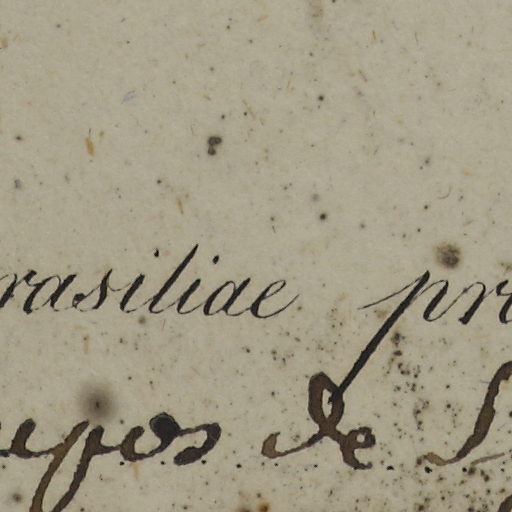 rasiliae pr
upos de S